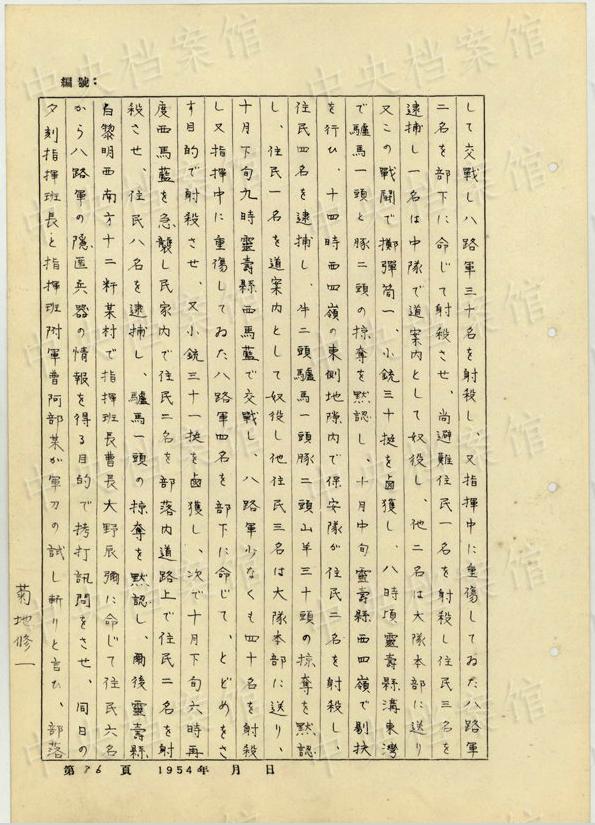 編號：
して交戰し八路軍三十名を射殺し、又指揮中に重傷してゐた八路軍
二名を部下に命じて射殺させ、尚避難住民一名を射殺し住民三名を
逮捕し一名は中隊で道案内として奴役し、他二名は大隊本部に送り
又この戰闘で擲彈筒一、小銃三十挺を鹵獲し、八時頃靈壽縣溝東灣
で驢馬一頭と豚二頭の掠奪を黙認し、十月中旬靈壽縣西四嶺で剔抉
を行ひ、十四時西四嶺の東側地隙内で保安隊が住民二名を射殺し、
住民四名を逮捕し、牛二頭驢馬一頭豚二頭山羊三十頭の掠奪を黙認
し、住民一名を道案内として奴役し他住民三名は大隊本部に送り、
十月下旬九時靈壽縣西馬藍で交戰し、八路軍少なくも四十名を射殺
し又指揮中に重傷してゐた八路軍四名を部下に命じて、とどめをさ
す目的で射殺させ、又小銃三十一挺を鹵獲し、次で十月下旬六時再
度西馬藍を急襲し民家内で住民二名を部落内道路上で住民二名を射
殺させ、住民八名を逮捕し、驢馬一頭の掠奪を黙認し、爾後靈壽縣
白黎明西南方十二粁某村で指揮班長曹長大野辰彌に命じて住民六名
から八路軍の隱匿兵器の情報を得る目的で拷打訊問をさせ、同日の
夕刻指揮班長と指揮班附軍曹阿部某が軍刀の試し斬りと言ひ、部落
菊地修一
第 76 頁 1954年 月 日
中央档案馆